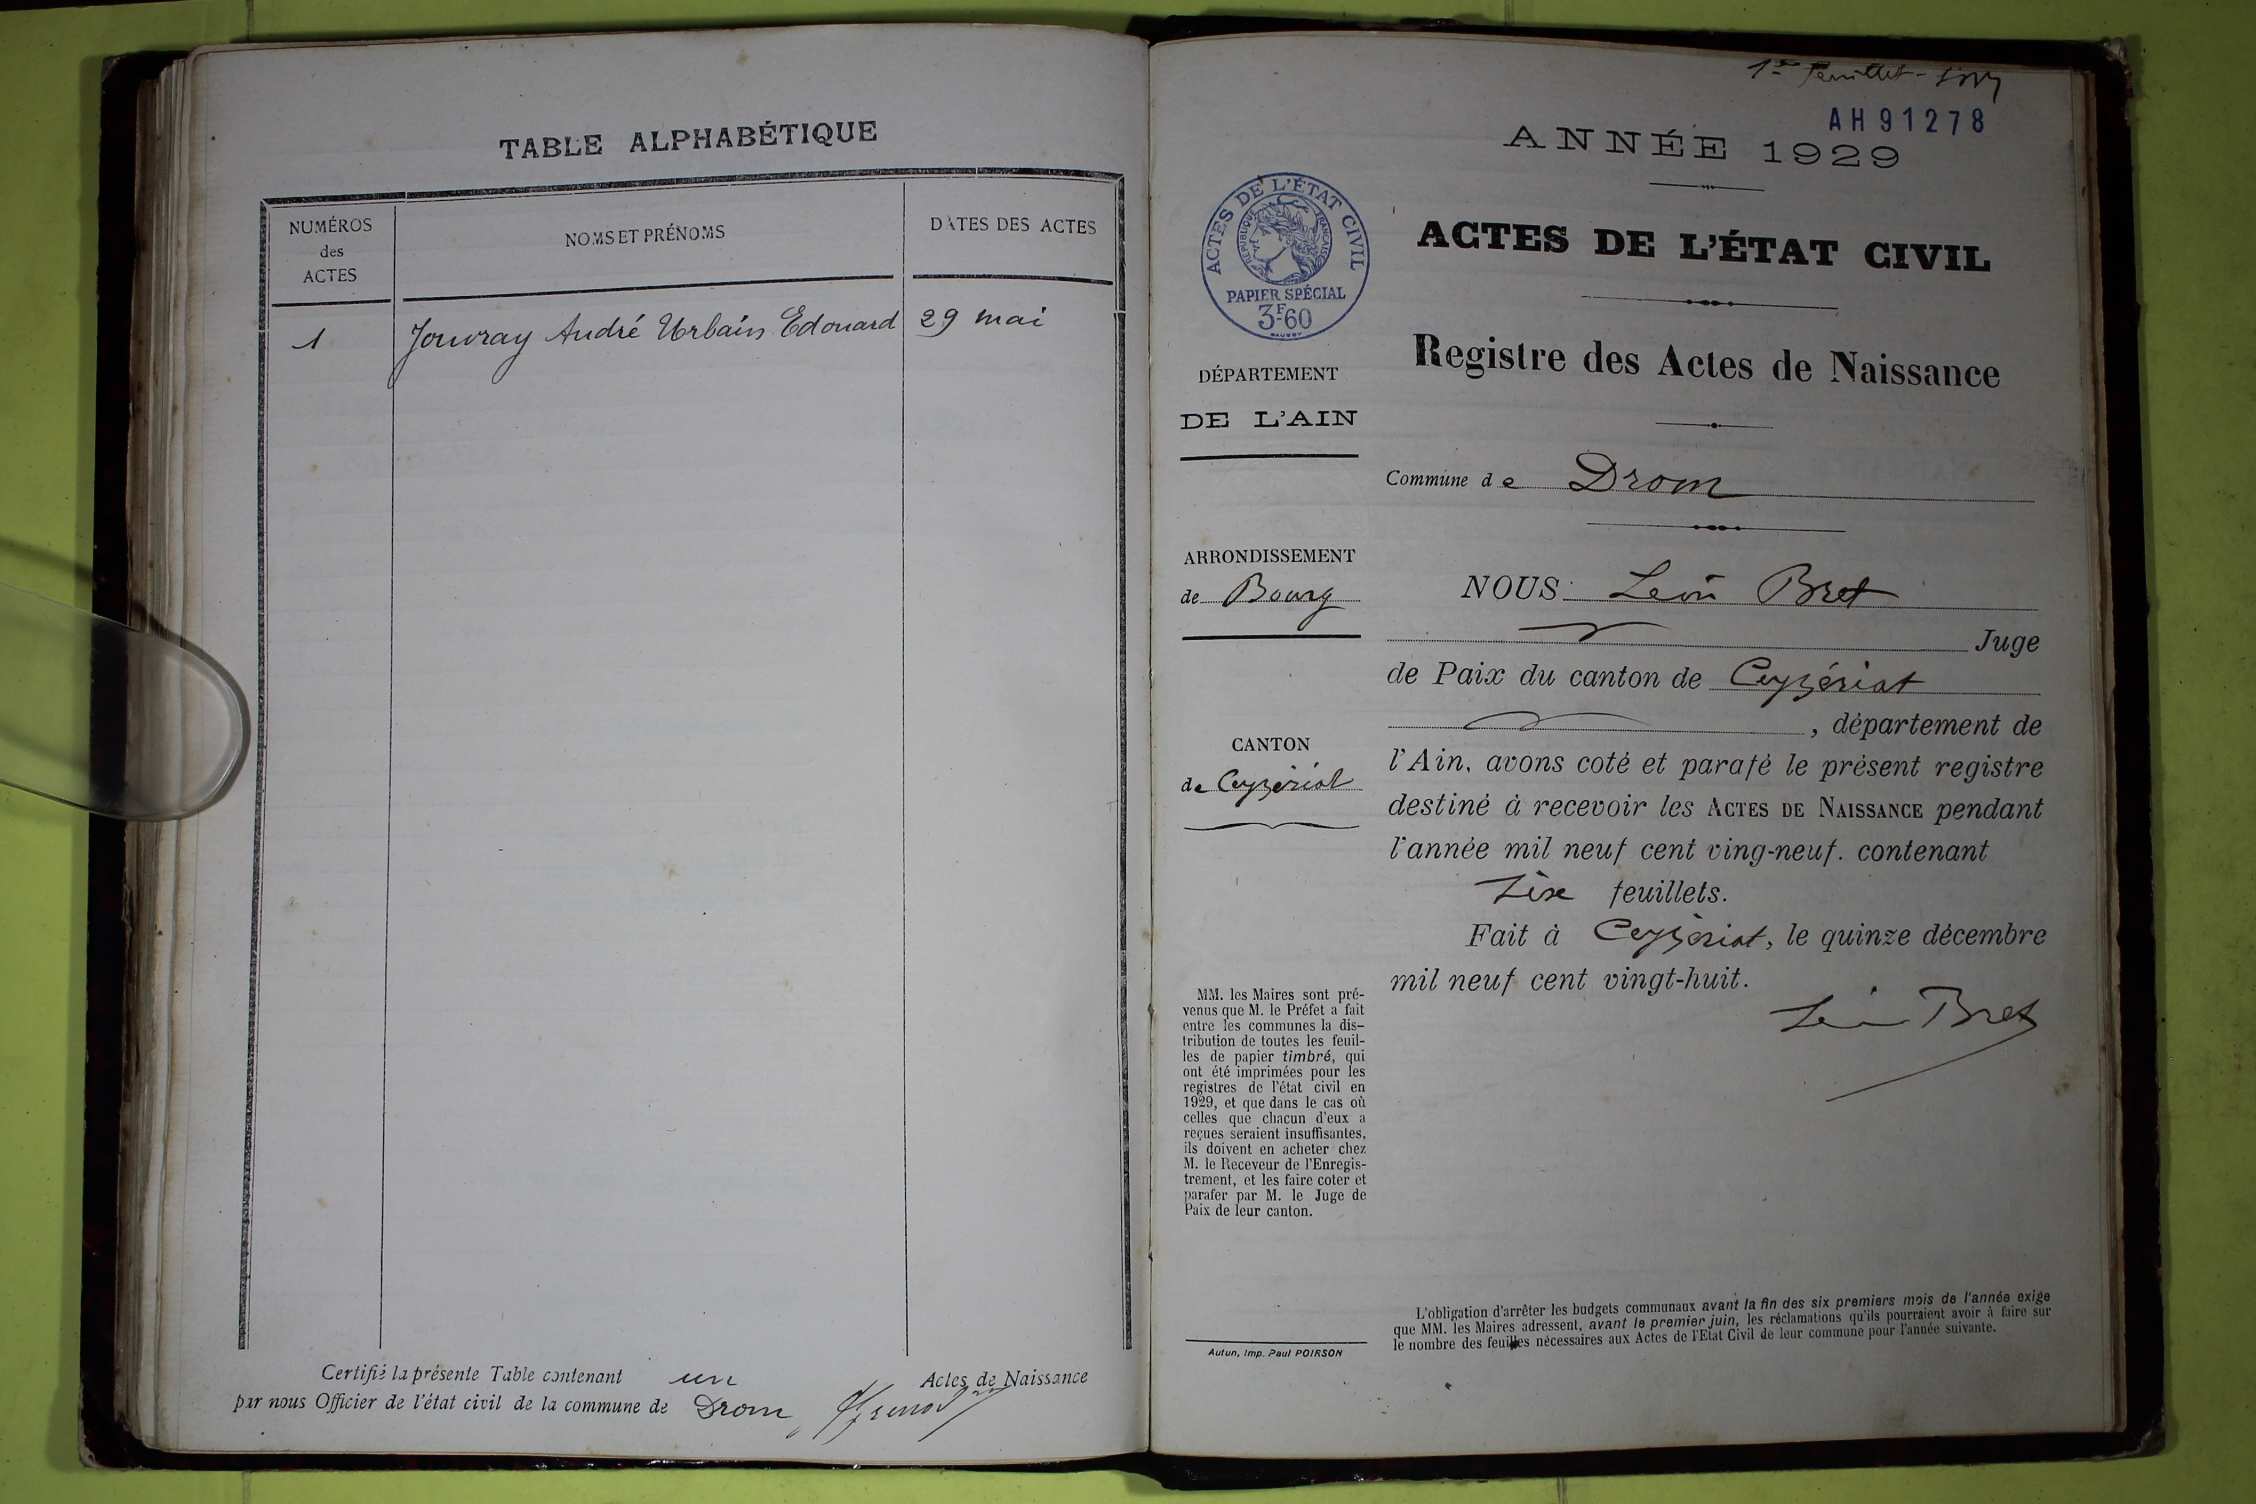 TABLE ALPHABÉTIQUE
NUMÉROS
des
ACTES
NOMS ET PRÉNOMS
DATES DES ACTES
1 Jouvray André Urbain Edouard 29 mai
Certifié la présente Table contenant un Actes de Naissance
par nous Officier de l'état civil de la commune de Drom,
1er feuillet -
AH91278
ANNÉE 1929
ACTES DE L'ÉTAT CIVIL
RÉPUBLIQUE FRANÇAISE
PAPIER SPÉCIAL
3F-60
ACTES DE L'ÉTAT CIVIL
Registre des Actes de Naissance
DÉPARTEMENT
DE L'AIN
Commune de Drom
ARRONDISSEMENT
de Bourg
CANTON
de Ceyzériat
NOUS Léon Bret
Juge
de Paix du canton de Ceyzériat
, département de
l'Ain, avons coté et parafé le présent registre
destiné à recevoir les ACTES DE NAISSANCE pendant
l'année mil neuf cent ving-neuf. contenant
feuillets.
Fait à Ceyzériat, le quinze décembre
mil neuf cent vingt-huit.
Léon Bret
MM. les Maires sont pré-
venus que M. le Préfet a fait
entre les communes la dis-
tribution de toutes les feuil-
les de papier timbré, qui
ont été imprimées pour les
registres de l'état civil en
1929, et que dans le cas où
celles que chacun d'eux a
reçues seraient insuffisantes,
ils doivent en acheter chez
M. le Receveur de l'Enregis-
trement, et les faire coter et
parafer par M. le Juge de
Paix de leur canton.
Autun, Imp. Paul POIRSON
L'obligation d'arrêter les budgets communaux avant la fin des six premiers mois de l'année exige
que MM. les Maires adressent, avant le premier juin, les réclamations qu'ils pourraient avoir à faire sur
le nombre des feuilles nécessaires aux Actes de l'Etat Civil de leur commune pour l'année suivante.